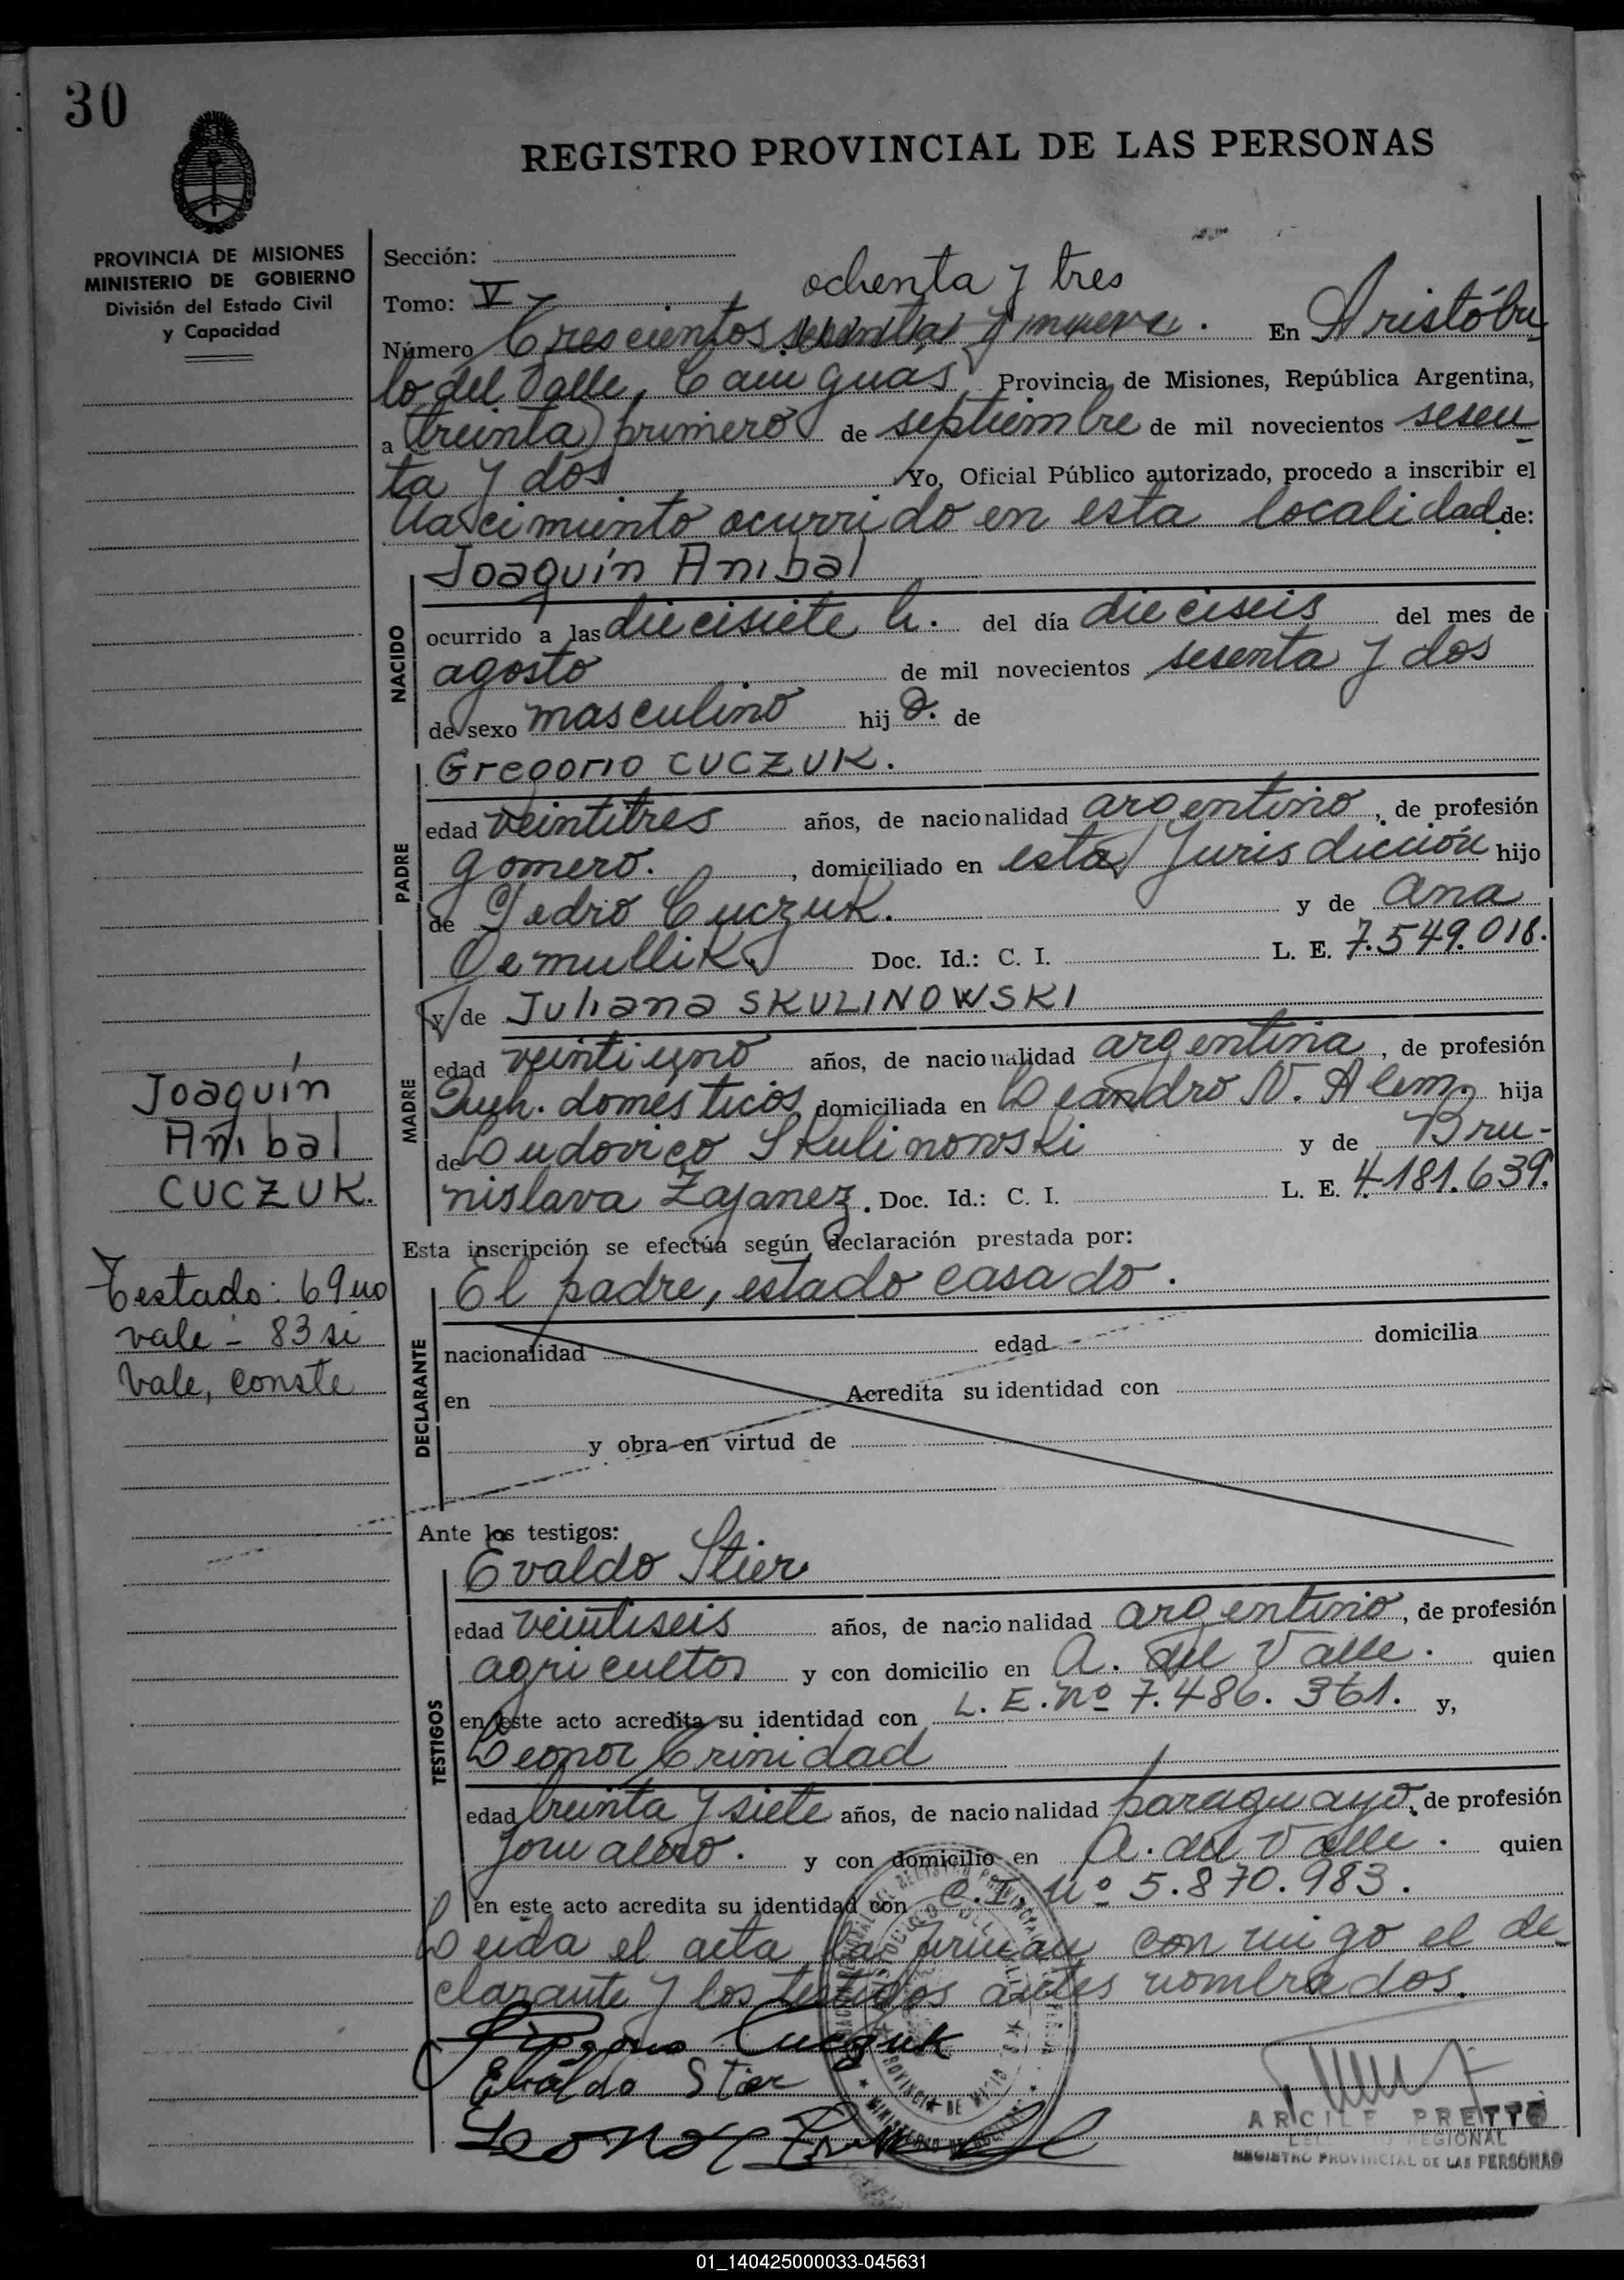 30
REGISTRO PROVINCIAL DE LAS PERSONAS
PROVINCIA DE MISIONES
MINISTERIO DE GOBIERNO
División del Estado Civil
y Capacidad
Sección:
Tomo: V
ochenta y tres
Número Trescientos sesenta y nueve. En Aristóbu
lo del Valle, Cainguas Provincia de Misiones, República Argentina,
a treinta primero de septiembre de mil novecientos sesen
ta y dos Yo, Oficial Público autorizado, procedo a inscribir el
Nacimiento ocurrido en esta localidad de:
NACIDO
Joaquín Anibal
ocurrido a las diecisiete h. del día dieciseis del mes de
agosto de mil novecientos sesenta y dos
de sexo masculino hij o. de
PADRE
Gregorio CUCZUK.
edad veintitres años, de nacionalidad argentino, de profesión
gomero. , domiciliado en esta Jurisdicción hijo
de Pedro Cuczuk. y de Ana
Demullik. Doc. Id.: C. I. L. E. 7.549.018.
MADRE
y de Juliana SKULINOWSKI
edad veintiuno años, de nacionalidad argentina, de profesión
Queh. domésticos domiciliada en Leandro N. Alem. hija
de Ludovico Skulinowski y de Bru-
nislava Zajanez. Doc. Id.: C. I. L. E. 4.181.639.
Joaquín
Anibal
CUCZUK.
Testado: 69 no
vale - 83 si
Vale, conste
Esta inscripción se efectúa según declaración prestada por:
DECLARANTE
El padre, estado casado.
nacionalidad edad domicilia
en Acredita su identidad con
y obra en virtud de
Ante los testigos:
TESTIGOS
Evaldo Stier
edad veintiseis años, de nacionalidad argentino, de profesión
agricultor y con domicilio en A. del Valle. quien
en este acto acredita su identidad con L. E. Nº 7.486.361. y,
Leonor Trinidad
edad treinta y siete años, de nacionalidad paraguayo, de profesión
jornalero. y con domicilio en A. del Valle. quien
en este acto acredita su identidad con C.I. Nº 5.870.983.
Leida el acta la firman con migo el de-
clarante y los testigos antes nombrados.
Gregorio Cuczuk
Evaldo Stier
Leonor Trinidad
ARCILE PRETTO
REGIONAL
REGISTRO PROVINCIAL DE LAS PERSONAS
01_140425000033-045631